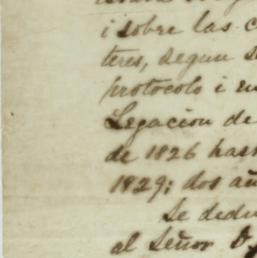 i sobre las c
teres, segun s
protocolo i en
Legacion de
de 1826 has
1829; dos añ
Se dedu
al Señor D.